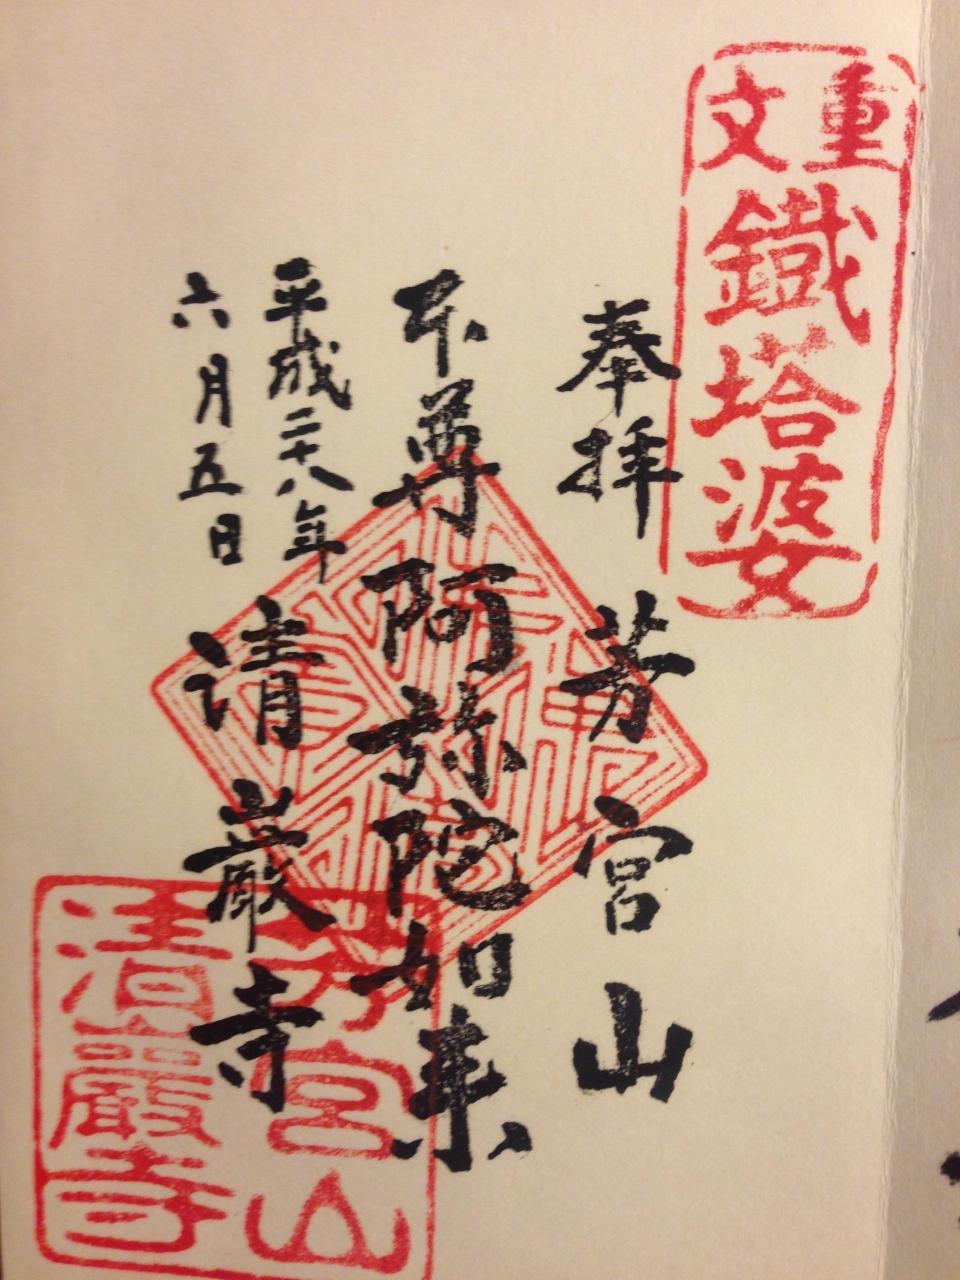 重文
鐵塔婆
奉拝 芳宮山
本尊阿弥陀如来
平成二十八年
六月五日
清巌寺
芳宮山
清巖寺